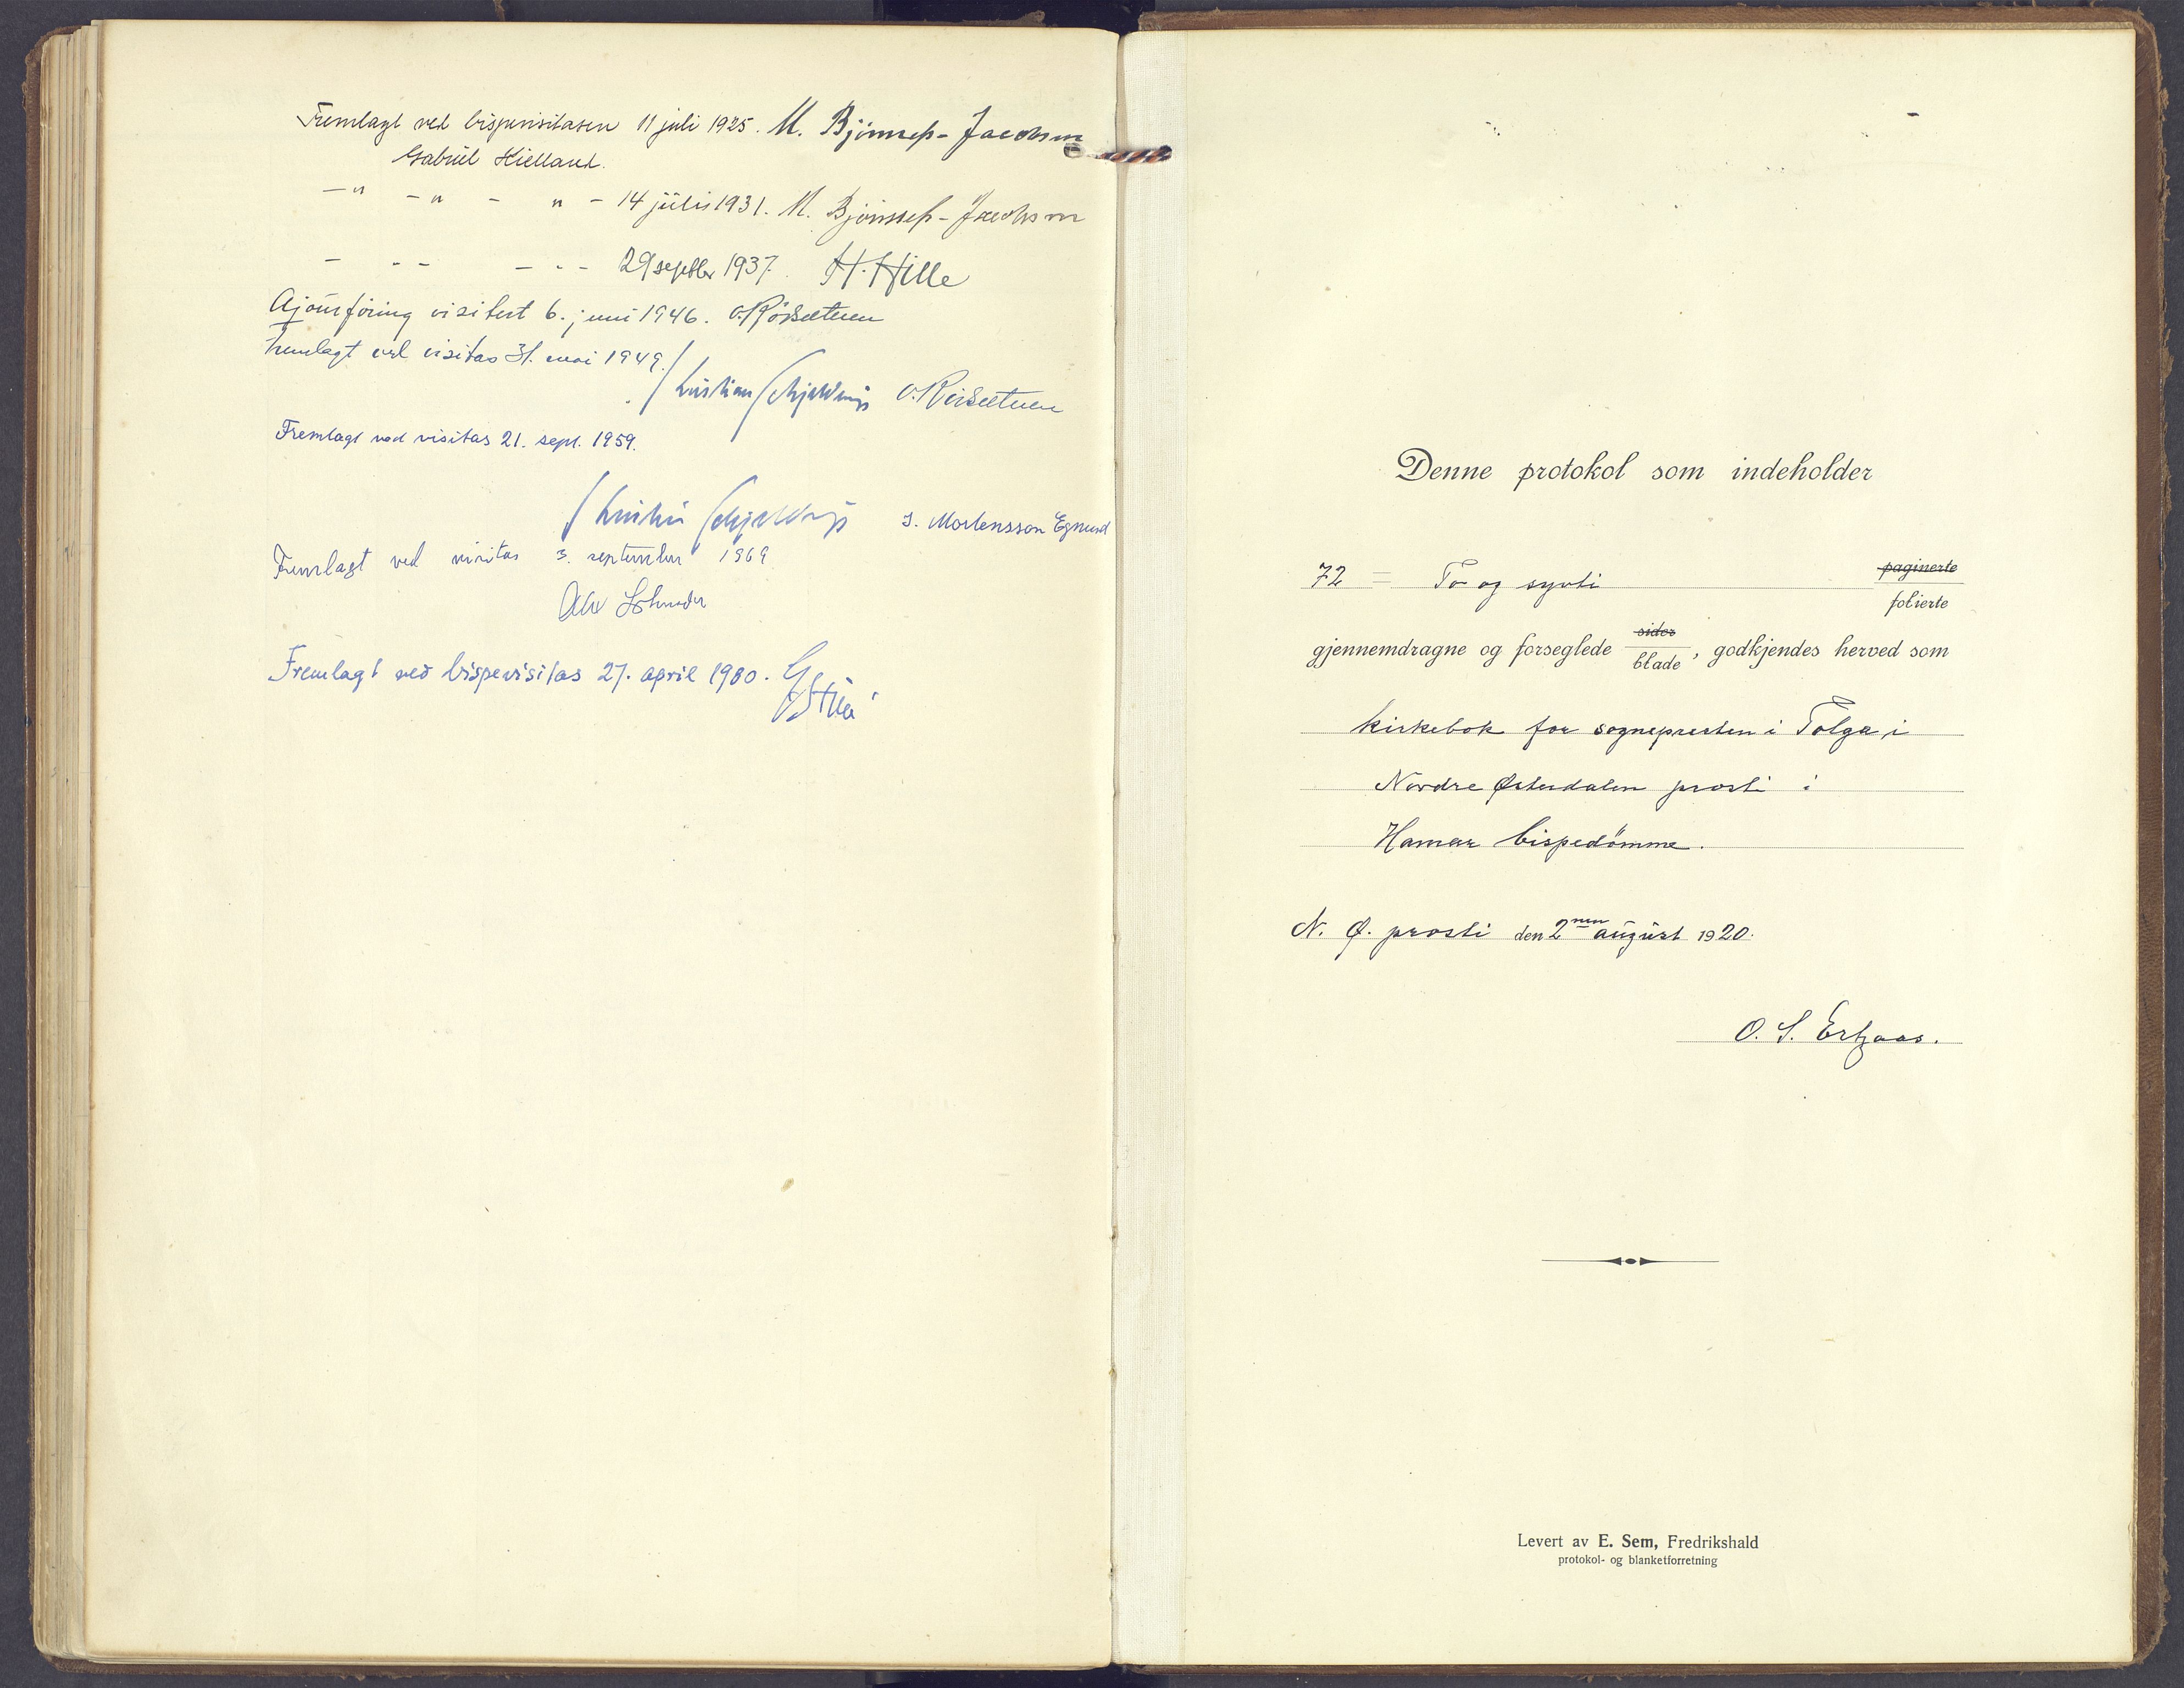 Fremlagt ved bispevisitasen 11 juli 1925. M. Bjønness-Jacobsen
Gabriel Kielland.
—"  -"  -  "  - 14 juli 1931. M. Bjønness-Jacobsen
-  - -  - - - 29 septbr 1937. H. Hille
Ajourføring visitert 6. juni 1946. O. Röiseteuen
Fremlagt ved visitas 31. mai 1949.
Kristian Schjelderup O. Röiseteuen
Fremlagt ved visitas 21. sept. 1959.
Kristian Schjelderup J. Mortensson Egnund
Fremlagt ved visitas 3. september 1969
Alex Johnson
Fremlagt ved bispevisitas 27. april 1980.
Denne protokol som indeholder
72 = To og sytti paginerte
folierte
gjennemdragne og forseglede sider
blade, godkjendes herved som
kirkebok for sognepresten i Tolga i
Nordre Østerdalen prosti i
Hamar bispedömme.
N. Ø. prosti den 2nen august 1920.
O. S.
Levert av E. Sem, Fredrikshald
protokol- og blanketforretning